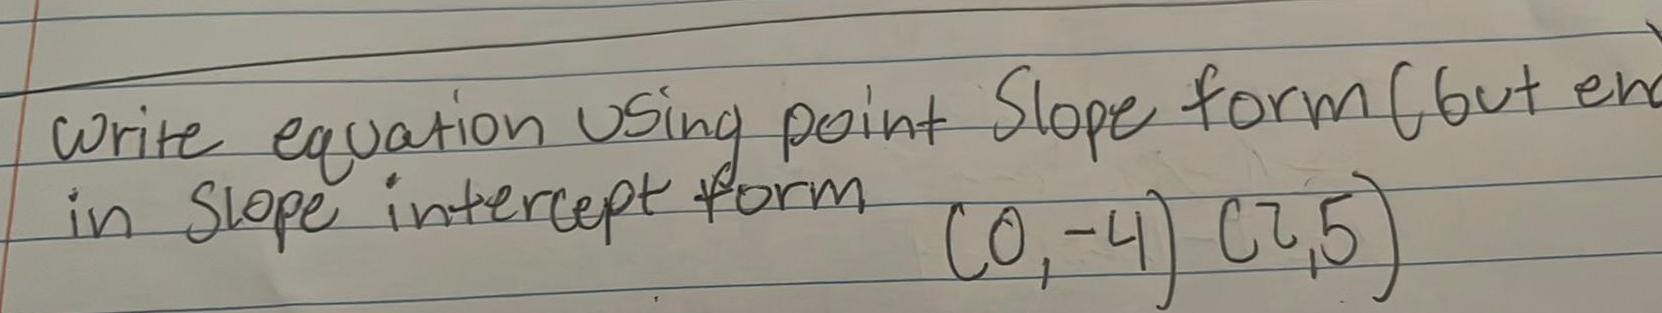 Write equation using point Slope form (but en
in Slope intercept form (0, -4) (7,5)